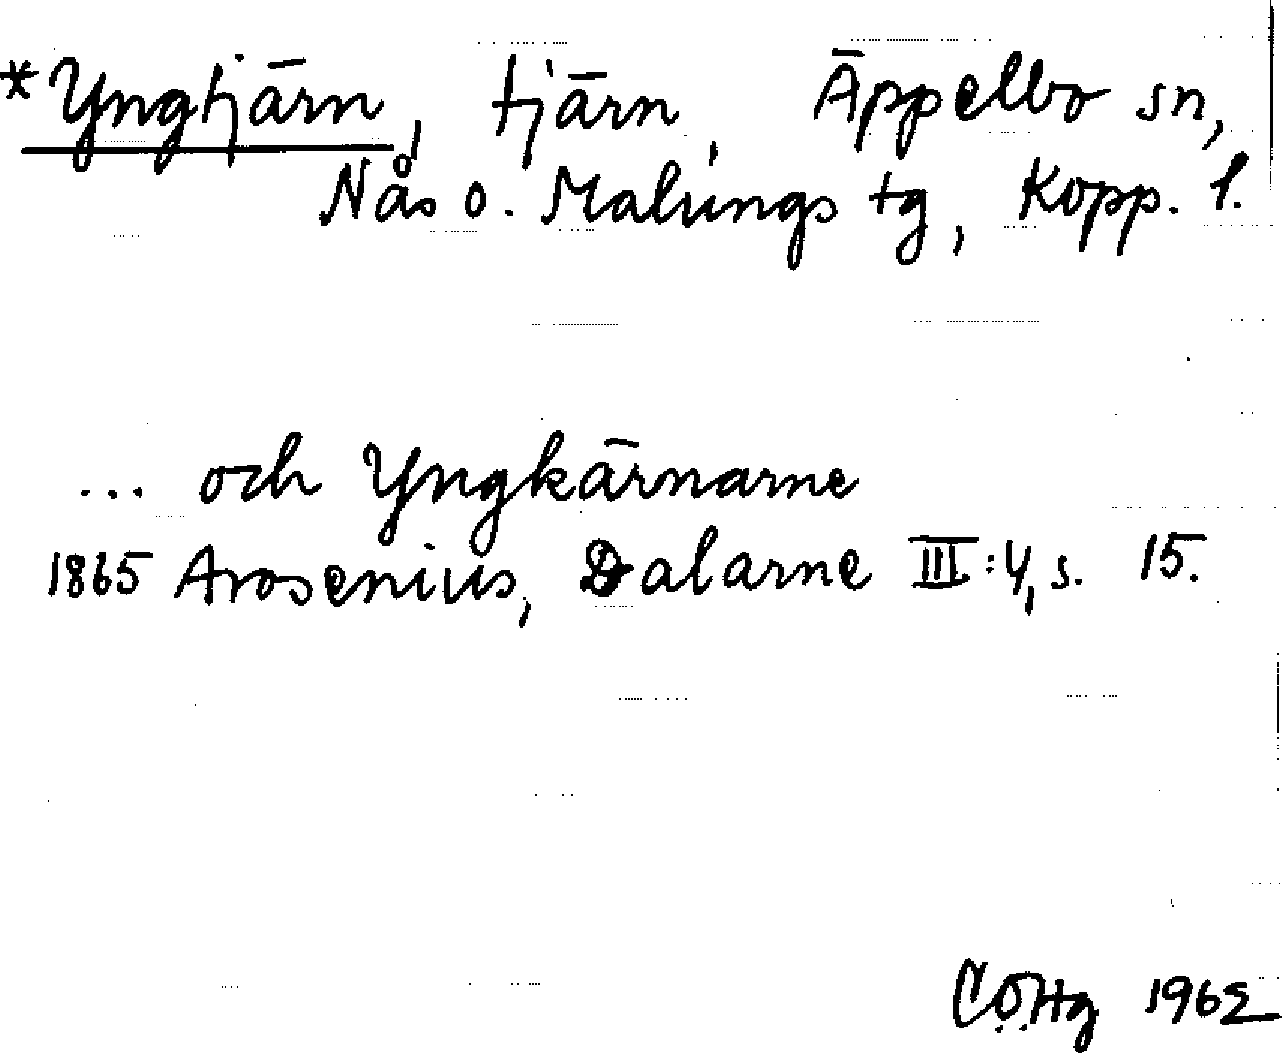 *Yngtjärn, tjärn, Äppelbo sn,
Nås o. Malungs tg, Kopp. l.
... och Yngkärnarne
1865 Arosenius, Dalarne III:4, s. 15.
CÖHg 1962